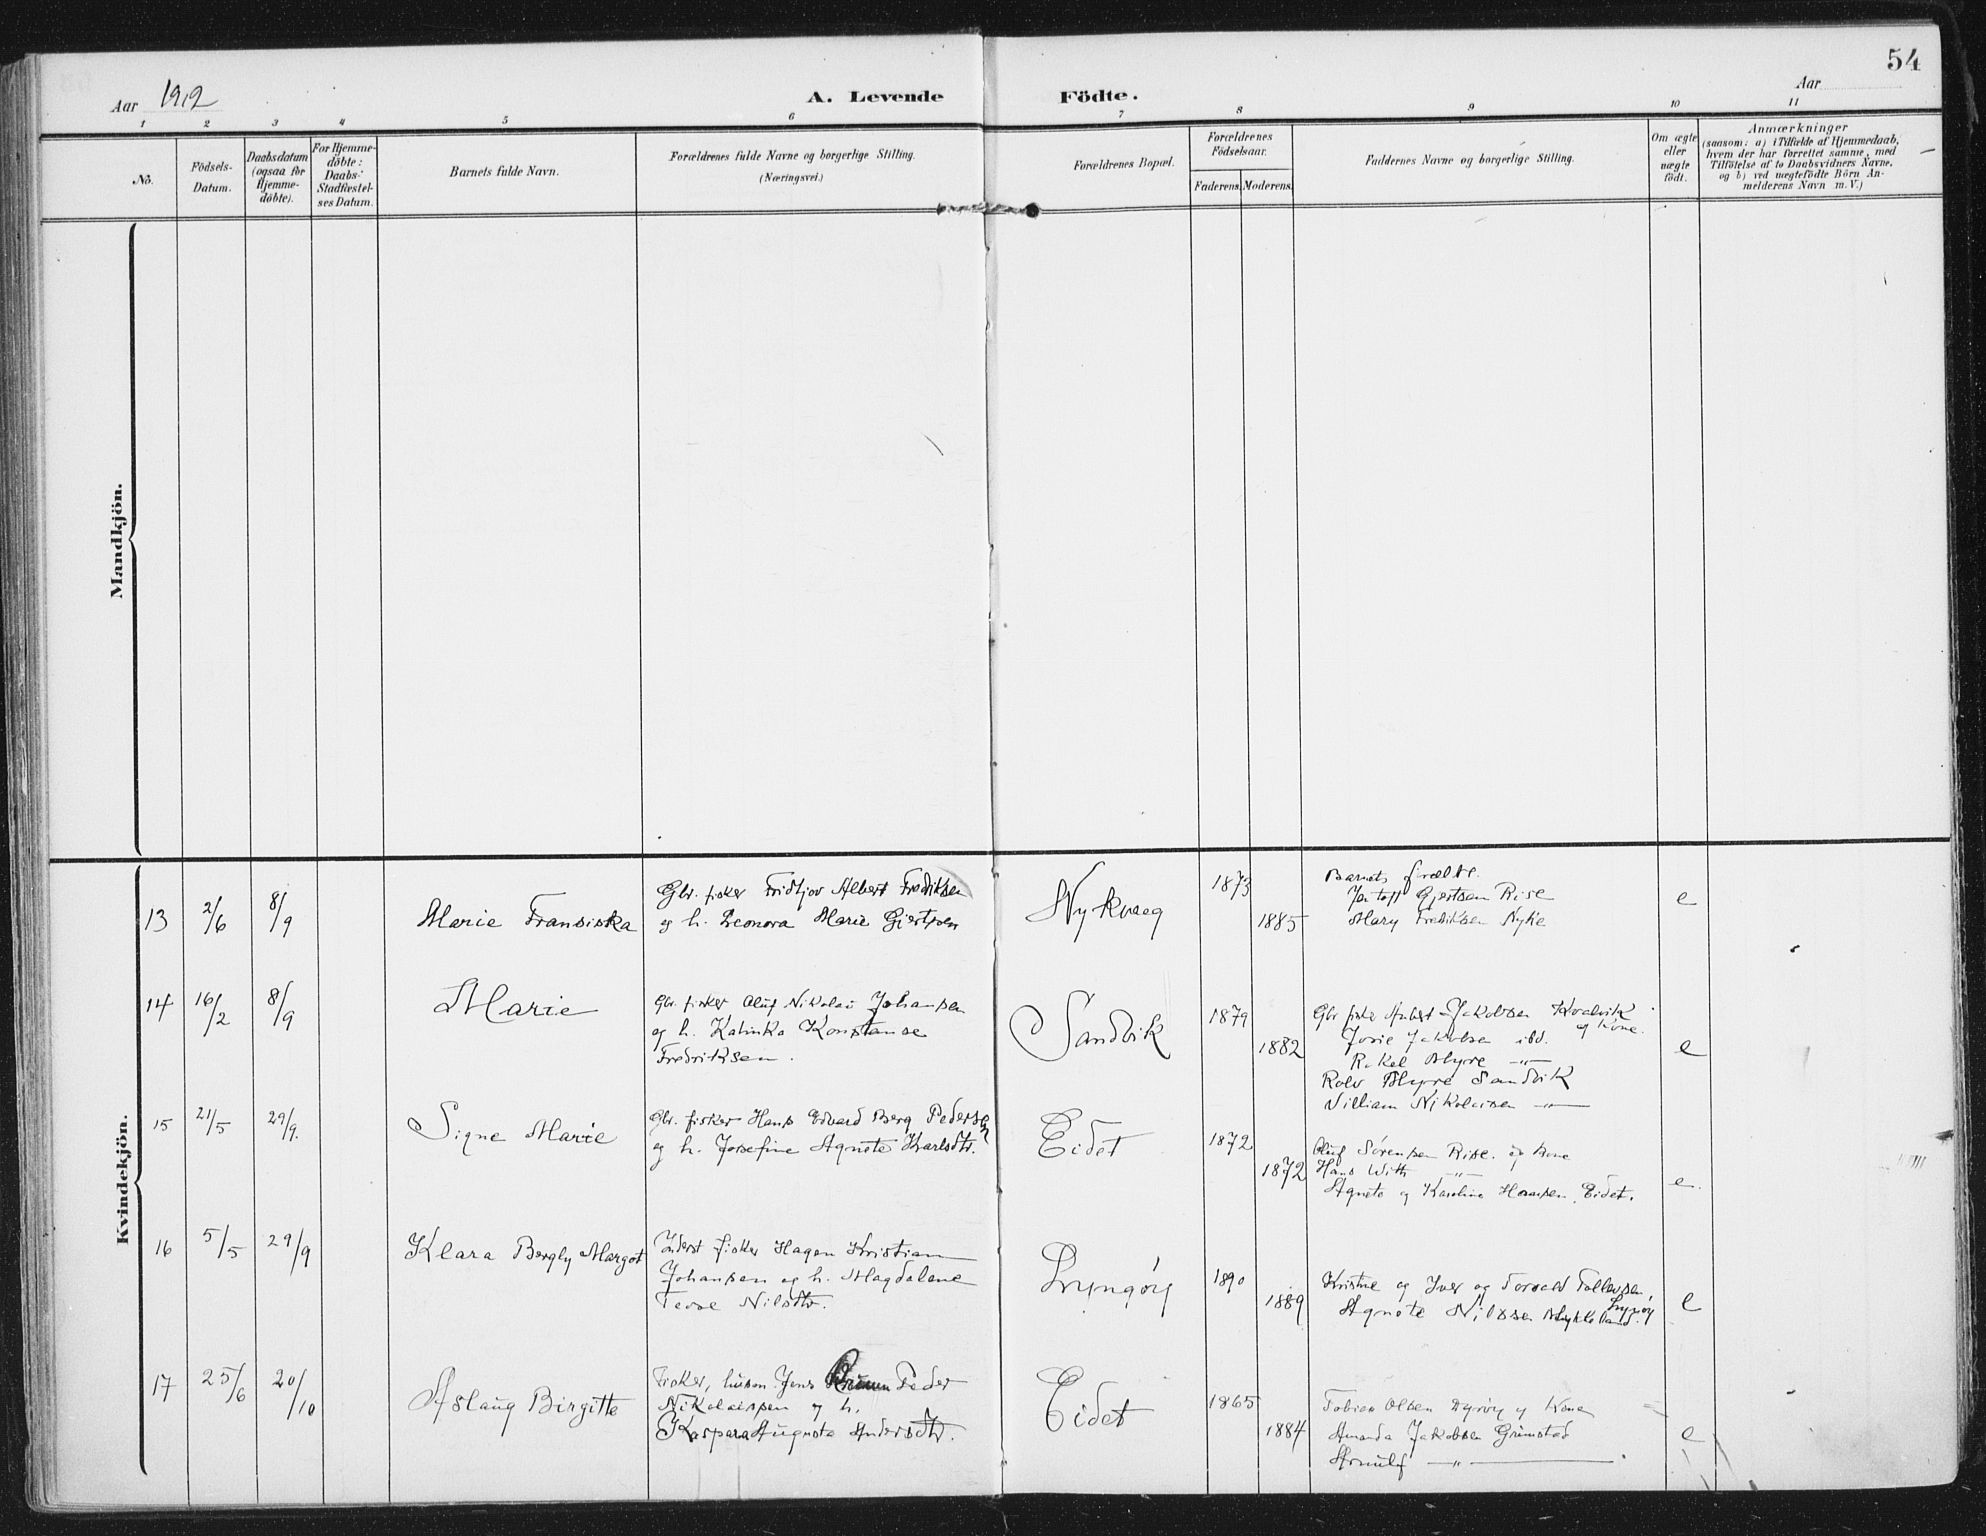 54
Aar 1912
A. Levende Födte.
Aar
1 2 3 4 5 6 7 8 9 10 11
No.
Födsels-
Datum.
Daabsdatum
(ogsaa for
Hjemme-
döbte).
For Hjemme-
döbte:
Daabs-
Stadfæstel-
ses Datum.
Barnets fulde Navn.
Forældrenes fulde Navne og borgerlige Stilling.
(Næringsvei.)
Forældrenes Bopæl.
Forældrenes
Födselsaar.
Faderens. Moderens.
Faddernes Navne og borgerlige Stilling.
Om ægte
eller
uægte
födt.
Anmærkninger
(saasom: a) i Tilfælde af Hjemmedaab,
hvem der har forrettet samme, med
Tilföielse af to Daabsvidners Navne,
og b) ved uægtefödte Börn An-
melderens Navn m. V.)
Mandkjön.
Kvindekjön.
13
2/6
8/9
Marie Fransiska
Gbr. fisker Fridtjov Albert Fredriksen
og h. Leonora Marie Gjertsen
Nykvaag
1873
1885
Barnets forældre.
Gjertsen Rise
Mary Fredriksen Nyke
e
14
16/2
8/9
Marie
Gbr. fisker Oluf Nikolai Johansen
og h. Katinka Konstanse
Fredriksen.
Sandvik
1879
1882
Gbr fisker Jakobsen Kvalvik
og kone.
Jakobsen ibd.
Rakel Myrre -"-
Rolv Myrre Sandvik
William Nikolaisen -"-
e
15
21/5
29/9.
Signe Marie
Gbr. fisker Hans Edvard Berg Pedersen
og h. Josefine Agnete Karlsdtr.
Eidet
1872
1872
Oluf Sörensen Rise. og kone
Hans With -"-
Agnete og Karoline Hansen Eidet.
e.
16
5/5
29/9
Klara Bergly Margot
Inderst fisker Hagen Kristian
Johansen og h. Magdalene
Nilsdtr.
Lyngöy
1890
1889
Kristine og Iver og Torvald Tollevsen,
Lyngöy
Agnete Nilssen
e
17
25/6
20/10
Aslaug Birgitte
Fisker, husm. Jens Peder
Nikolaisen og h.
Kaspara Augusta Andersdtr.
Eidet
1865
1884
Tobias Olsen Dyröy og Kone
Amanda Jakobsen Grimstad
Arnulf -"-
e